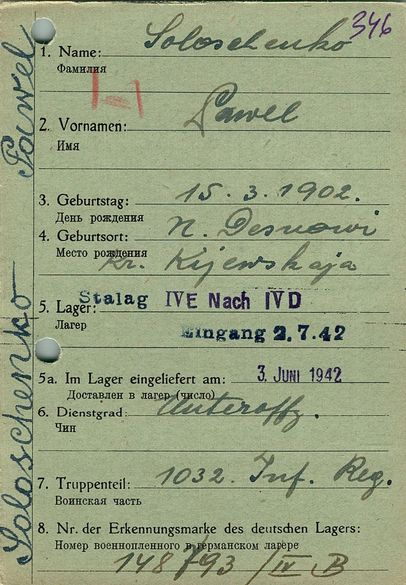 346
1. Name: Soloschenko
Фамилия
2. Vornamen: Pawel
Имя
3. Geburtstag: 15.3.1902.
День рождения
4. Geburtsort: N. Desnowi
Место рождения
Kr. Kijewskaja
Stalag IVE Nach IVD
5. Lager:
Лагер
Eingang 2.7.42
5a. Im Lager eingeliefert am: 3. JUNI 1942
Доставлен в лагер (число)
6. Dienstgrad: Unteroffz.
Чин
7. Truppenteil: 1032. Inf. Reg.
Воинская часть
8. Nr. der Erkennungsmarke des deutschen Lagers:
Номер военнопленного в германском лагере
148793 / IV B
Soloschenko Pawel